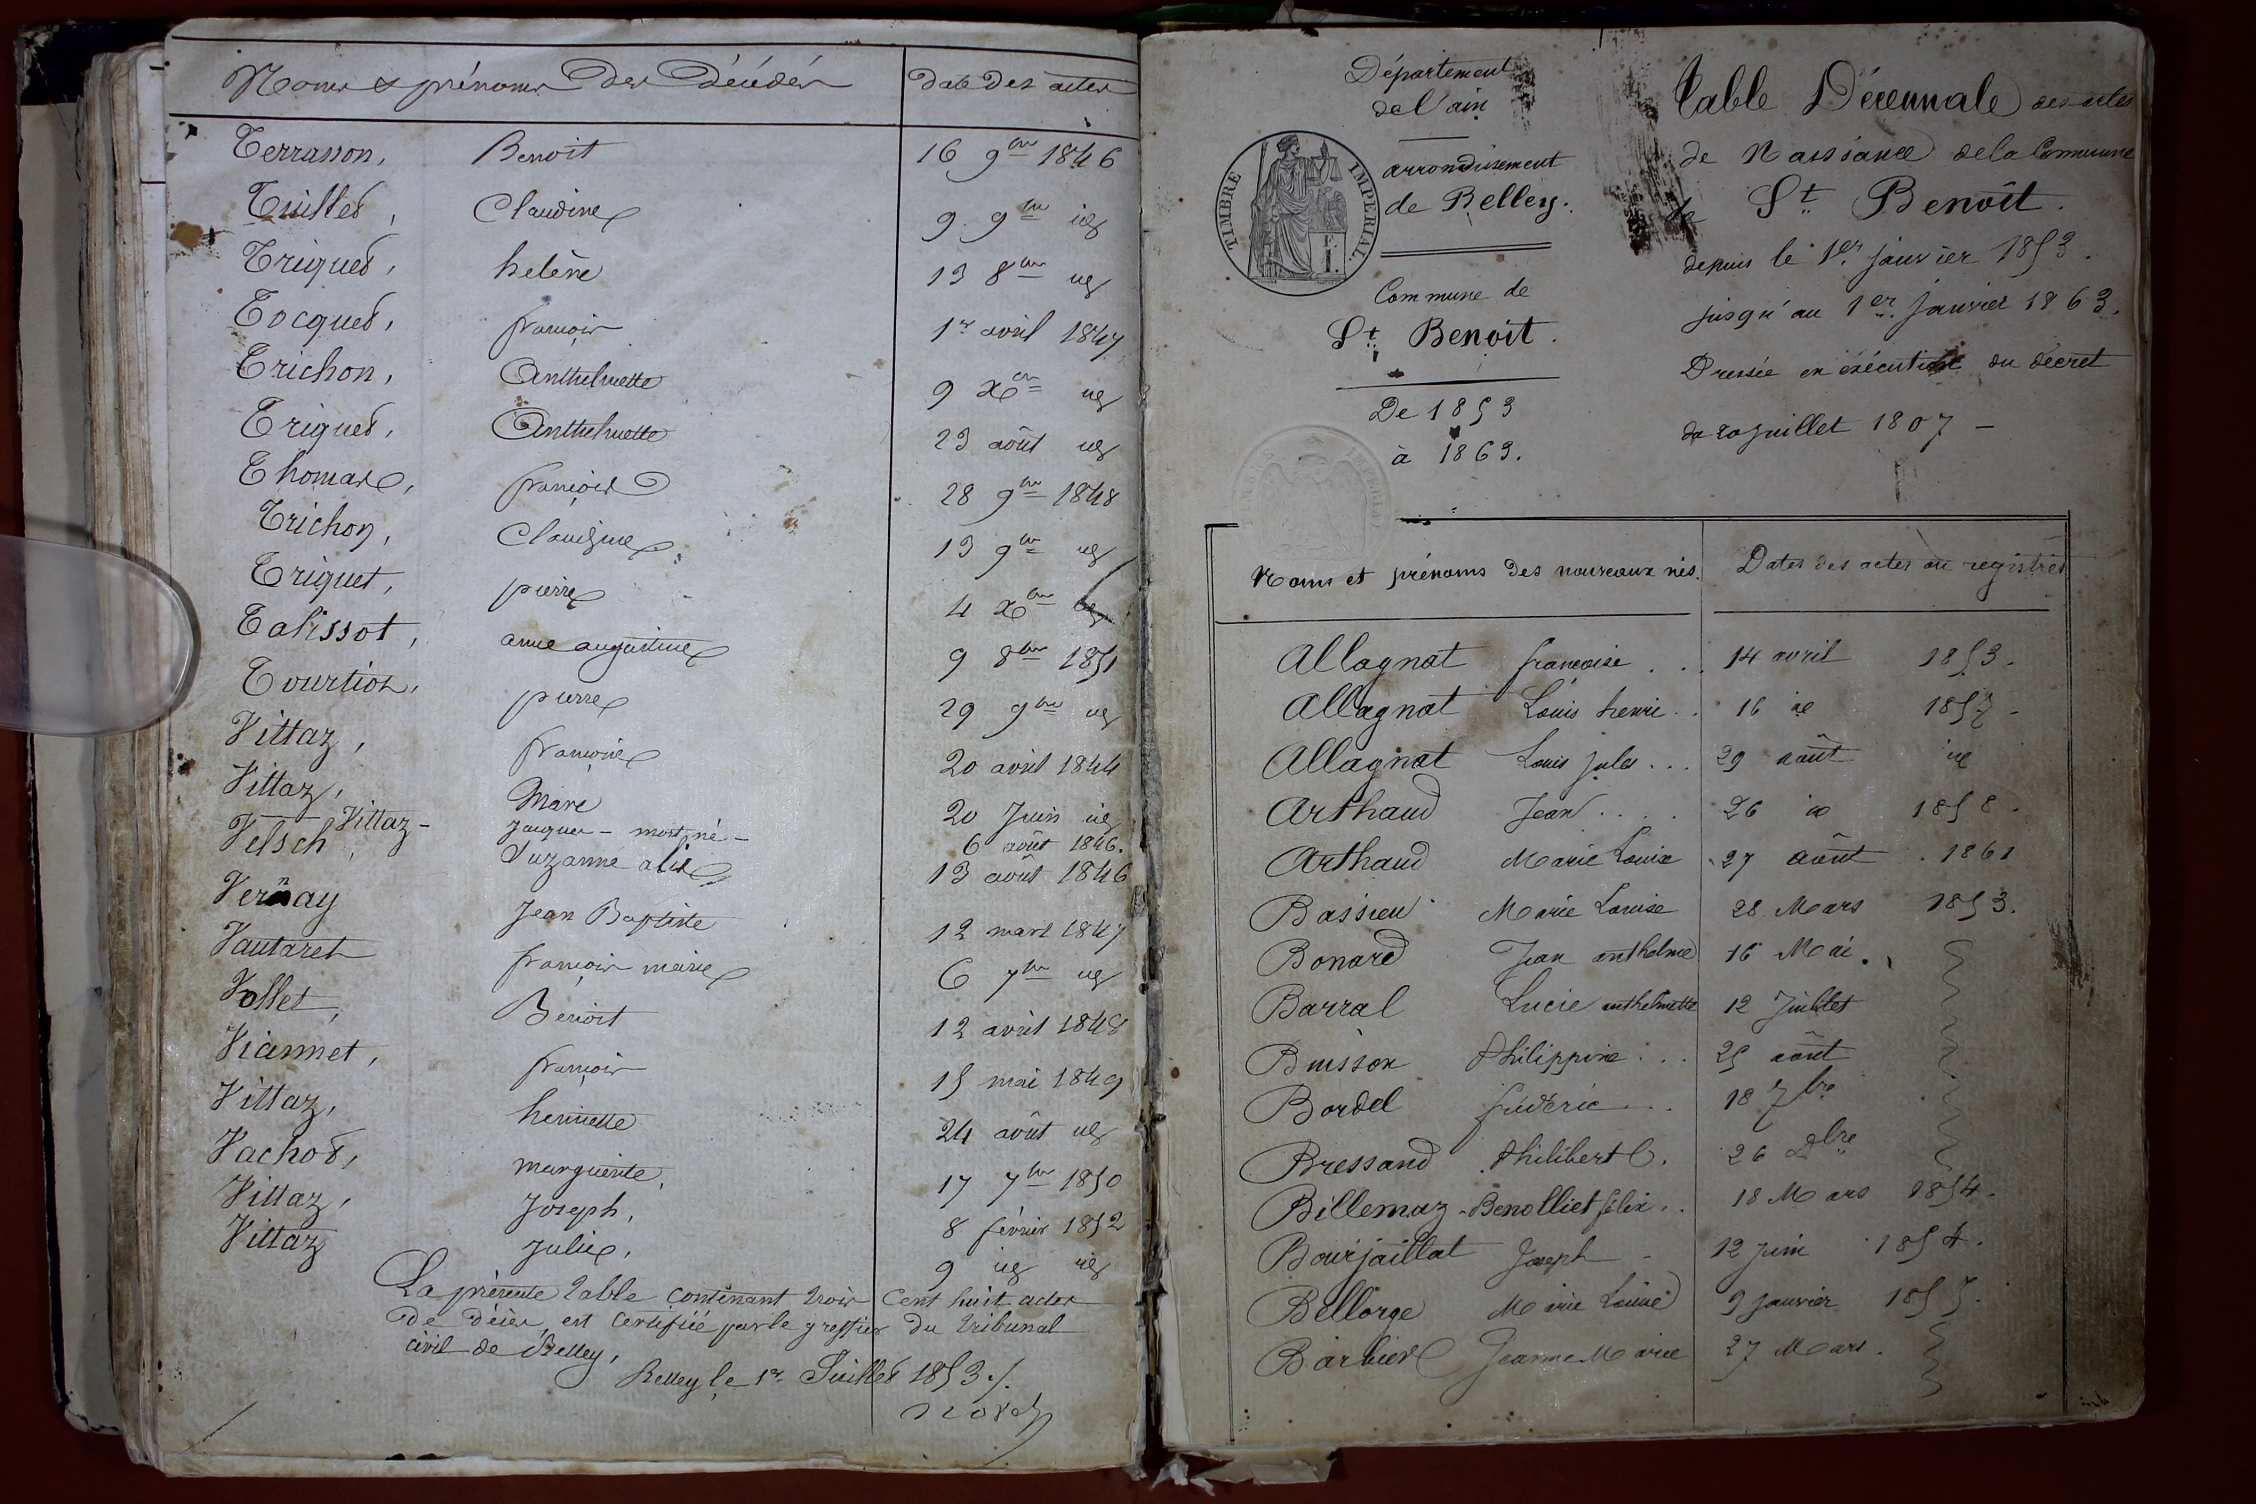 Noms & prénoms des décédés date des actes
Terrasson, Benoit 16 9bre 1846
Tuilled, Claudine 9 9bre id
Triqued, heléne 13 8bre id
Tocqued, françois 1er avril 1847
Trichon, Anthelmette 9 Xbre id
Triqued, Anthelmette 23 août id
Thomas, françois 28 9bre 1848
Trichon, Claudine 13 9bre id
Triquet, pierre 4 Xbre id
Talissot, anne augustine 9 8bre 1851
Tourtion, pierre 29 9bre id
Vittaz, françoise 20 avril 1844
Vittaz, Marie 20 Juin id
Vittaz - Jacques - mort né - 6 août 1846.
Velsch, Suzanne alix 13 août 1846
Vernay Jean Baptiste 12 mars 1847
Vautaret françois marie 6 7bre id
Vollet, Benoit 12 avril 1848
Viannet, françois 15 mai 1849
Vittaz, henriette 24 août id
Vachod, marguerite, 17 7bre 1850
Vittaz, Joseph, 8 février 1852
Vittaz Julie, 9 id id
La présente table contenant trois cent huit actes
de décès, est certifiée par le greffier du tribunal
civil de Belley,
Belley, le 1er Juillet 1853 ./.
Département
de l'ain
arrondissement
de Belley.
TIMBRE IMPERIAL
1 F.
Commune de
St Benoit.
De 1853
à 1863.
Table Décennale des actes
de Naissance de la Commune
de St Benoît.
depuis le 1er janvier 1853.
jusqu'au 1er janvier 1863.
Dressée en exécution du décret
du 20 juillet 1807 -
Noms et prénoms des nouveaux nés. Dates des actes au registre
Allagnat francoise . . 14 avril 1853.
Allagnat Louis henri . . 16 id 1857 -
Allagnat Louis jules . . . 29 août id
Arthaud Jean . . . . 26 id 1858.
Arthaud Marie Louise 27 août 1861
Bassieu Marie Louise 28 Mars 1853.
Bonard Jean anthelme 16 Mai.
Barral Lucie anthelmette 12 Juillet
Buisson Philippine . . . 25 août
Bordel frédéric . . . 18 7bre
Bressand Philibert. 26 Dbre
Billemaz - Benolliet félix . . 18 Mars 1854.
Bourjaillat Joseph - 12 juin 1854.
Bellorge Marie Louise 9 janvier 1855.
Barbier Jeanne Marie 27 Mars.